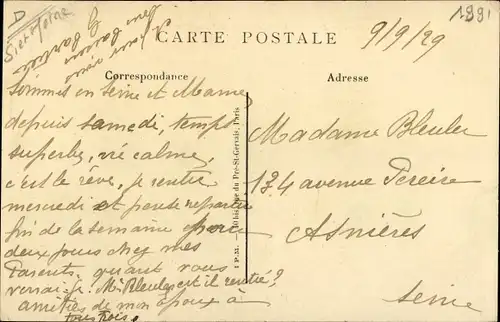 D
1991
S et Marne
CARTE POSTALE
9/9/29
Correspondance
Adresse
Sommes en Seine et Marne
depuis samedi, temps
superbe, vie calme,
c'est le rêve, je rentre
mercredi et pense repartir
fin de la semaine
deux jours chez mes
Parents, quand vous
verrai-je. Mr Bleuler est il rentré?
amitiés de mon époux à
tous trois.
Madame Bleuler
134 avenue Pereire
Asnières
Seine
I P.M. — 40 bis, rue du Pré-St-Gervais, Paris
bons baisers